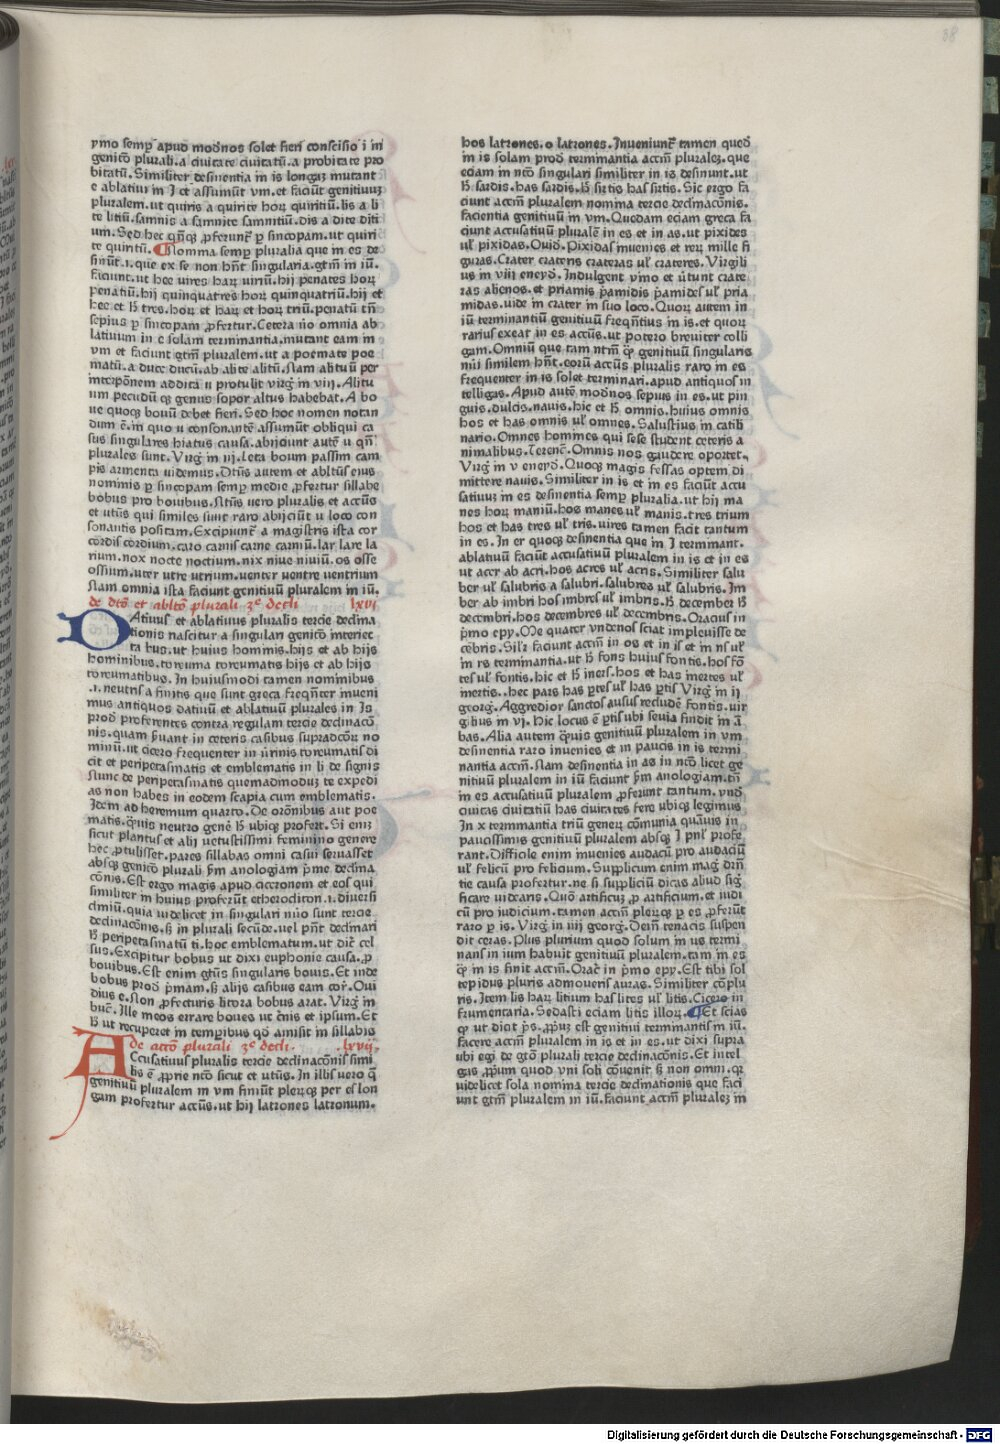 38
ymo semp̄ apud mod̓nos solet fieri conscisio i in
genit̓o plurali. a ciuitate ciuitatū. a probitate pro
bitatū. Similiter desinentia in is longaꝫ mutant
e ablatiui in I et assumūt vm. et faciūt genitiuuꝫ
pluralem. ut quiris a quirite hoꝝ quiritiū. lis a li
te litiū. samnis a samnite samnitiū. dis a dite diti
um. Sed hec qn̄qꝫ ꝓferunt᷑ ꝑ sincopam. ut quiri
te quiritū. ¶ Nomina semp̄ pluralia que in es de
sinūt. .i. que ex se non hn̄t singularia. gtm̄ in iū.
faciunt. ut hee vires haꝝ uiriū. hij penates hoꝝ
penatiū. hij quinquatres hoꝝ quinquatriū. hij et
hee et h̄ tres. hoꝝ et haꝝ et hoꝝ triū. penatū tn̄
sepius ꝑ sincopam ꝓfertur. Cetera ūo omnia ab
latiuum in e solam terminantia. mutant eam in
vm et faciunt gtm̄ pluralem. ut a poemate poe
matū. a duce ducū. ab alite alitū. Nam alituū per
interpōnem addita u protulit virg̓ in viij. Alitu
um pecudū qꝫ genus sopor altus habebat. A bo
ue quoqꝫ bouū debet fieri. Sed hoc nomen notan
dum ē. in quo u consonantē assumūt obliqui ca
sus singulares hiatus causa. abijciunt autē u qn̄
plurales sunt. Virg̓ in iij. Leta boum passim cam
pis armenta uidemus. Dt̄us autem et abltūs eius
nominis ꝑ sincopam semp̄ medie ꝓfertur sillabe
bobus pro bouibus. Nt̄us uero pluralis et accūs
et utūs qui similes sunt raro abijciūt u loco con
sonantis positam. Excipiunt᷑ a magistris ista cor
cordis cordium. caro carnis carne carniū. lar lare la
rium. nox nocte noctium. nix niue niuiū. os osse
ossium. uter utre utrium. uenter uentre uentrium
Nam omnia ista faciunt genitiuū pluralem in iū.
de dtō et abltō plurali 3ᵉ decli lxvi
DAtiuus et ablatiuus pluralis tercie declina
tionis nascitur a singulari genit̓o interiec
ta bus. ut huius hominis. hijs et ab hijs
hominibus. toreuma toreumatis hijs et ab hijs
toreumatibus. In huiusmodi tamen nominibus
.i. neutris a finitis que sunt greca freqn̄ter inueni
mus antiquos datiuū et ablatiuū plurales in Is
prod̓ proferentes contra regulam tercie declinacō
nis. quam ꝑuant in ceteris casibus supradcōꝝ no
minū. ut cicero frequenter in ūrinis toreumatis di
cit et peripetasmatis et emblematis in li de signis
Nunc de peripetasmatis quemadmoduꝫ te expedi
as non habes in eodem scapia cum emblematis.
Idem ad herennum quarto. De orōnibus aut poe
matis. qͥuis neutro genē h̄ ubiqꝫ profert. Si eniꝫ
sicut plautus et alij uetustissimi feminino genere
hec ꝓtulisset. pares sillabas omni casui seruasset
absqꝫ genit̓o plurali ẜm anologiam ꝑme declina
cōnis. Est ergo magis apud ciceronem et eos qui
similiter in huius proferūt etheroclicon. .i. diuersi
cliniū. quia uidelicet in singulari nūo sunt tercie
declinacōnis. s̄ in plurali secūde. uel pn̄t declinari
h̄ peripetasmatū ti. hoc emblematum. ut dic̄ cel
sus. Excipitur bobus ut dixi euphonie causa. ꝓ
bouibus. Est enim gtūs singularis bouis. Et inde
bobus prod̓ pͥmam. s̄ alijs casibus eam cor̄. Oui
dius e. Non ꝓfecturis litora bobus arat. Virg̓ in
buc̄. Ille meos errare boues ut c̄nis et ipsum. Et
h̄ ut recuperet in temp̄ibus qd̓ amisit in sillabis
de accō plurali 3ᵉ decli. lxvij.
ACcusatiuus pluralis tercie declinacōnis simi
lis ē ꝓprie ncō sicut et utūs. In illis uero q̄
genitiuū pluralem in vm finiūt plerūqꝫ per es lon
gam profertur accūs. ut hij latrones latronum.
hos latrones. o latrones. Inueniunt᷑ tamen qued̓
in is solam prod̓ terminantia accm̄ pluraleꝫ. que
eciam in ncō singulari similiter in is desinunt. ut
h̄ sardis. has sardis. h̄ sirtis has sirtis. Sic ergo fa
ciunt accm̄ pluralem nomina tercie declinacōnis.
facientia genitiuū in vm. Quedam eciam greca fa
ciunt accusatiuū pluralē in es et in as. ut pixides
ul̓ pixidas. Ouid̓. Pixidas inuenies et reꝝ mille fi
guras. Crater crateris crateras ul̓ crateres. Virgili
us in viij eneyd̓. Indulgent vino et ūtunt crate
ras ahenos. et priamis ꝑamidis ꝑamides ul̓ pria
midas. uide in crater in suo loco. Quoꝝ autem in
iū terminantiū genitiuū freqn̄tius in is. et quoꝝ
rarius exeat in es accūs. ut potero breuiter colli
gam. Omniū que tam ntm̄ qͣꝫ genitiuū singularis
nūi similem hn̄t. eorū accūs pluralis raro in es
frequenter in is solet terminari. apud antiquos in
telligas. Apud autē mod̓nos sepius in es. ut pin
guis. dulcis. nauis. hic et h̄ omnis. huius omnis
hos et has omnis ul̓ omnes. Salustius in catili
nario. Omnes homines qui sese student ceteris a
nimalibus. Terenc̄. Omnis nos gaudere oportet.
Virg̓ in v eneyd̓. Quocqꝫ magis fessas optem di
mittere nauis. Similiter in is et in es faciūt accu
satiuuꝫ in es desinentia semp̄ pluralia. ut hij ma
nes hoꝝ maniū. hos manes ul̓ manis. tres trium
hos et has tres ul̓ tris. uires tamen facit tantum
in es. In er quoqꝫ desinentia que in I terminant.
ablatiuū faciūt accusatiuū pluralem in is et in es
ut acer ab acri. hos acres ul̓ acris. Similiter salu
ber ul̓ salubris a salubri. salubres ul̓ salubris. Im
ber ab imbri hos imbres ul̓ imbris. h̄ december h̄
decembri. hos decembres ul̓ decembris. Oracius in
pͥmo epy. Me quater vndenos sciat impleuisse de
cēbris. Sil̓r faciunt accm̄ in os et in is et in ns ul̓
in rs terminantia. ut h̄ fons huius fontis. hos fō
tes ul̓ fontis. hic et h̄ iners. hos et has inertes ul̓
inertis. .hec pars has ꝑtes ul̓ has ꝑtis Virg̓ in ij
georg̓. Aggredior sanctos ausus recludē fontis. uir
gilius in vj. Hic locus ē ꝑtis ubi seuia findit in ā
bas. Alia autem qͥuis genitiuū pluralem in vm
desinentia raro inuenies et in paucis in is termi
nantia accm̄. Nam desinentia in as in ncō licet ge
nitiuū pluralem in iū faciunt ẜm anologiam. tn̄
in es accusatiuū pluralem ꝓferunt tantum. vnd̓
ciuitas ciuitatiū has ciuitates fere ubiqꝫ legimus
In x terminantia triū generꝝ cōmunia quāuis in
paucissimis genitiuū pluralem absqꝫ I pn̄l̓ profe
rant. Difficile enim inuenies audacū pro audaciū
ul̓ felicū pro felicium. Supplicum enim mag̓ dr̄n
tie causa profertur. ne si suppliciū dicas aliud sig̓
ficare uideans. Quō artificuꝫ ꝓ artificium. et iudi
cū pro iudicium. tamen accm̄ plerūqꝫ ꝑ es ꝓferūt
raro ꝑ is. Virg̓ in iiij georg̓. Dein̄ tenacis suspen
dit ceras. Plus plurium quod solum in us termi
nans in ium habuit genitiuū pluralem. tam in es
qͣꝫ in is finit accm̄. Orac̄ in pͥmo epy. Est tibi sol
tepidus pluris admoueris auras. Similiter cōplu
ris. Item lis haꝝ litium has lites ul̓ litis. Cicero in
frumentaria. Sedasti eciam litis illoꝝ. ¶ Et scias
qͣꝫ ut dicit pͥs. ꝓpuꝫ est genitiui terminantis in iū.
facere accm̄ pluralem in is et in es. ut dixi supra
ubi egi de gtō plurali tercie declinacōnis. Et intel
gas ꝓpuum quod vni soli cōuenit. s̄ non omni. qꝛ
videlicet sola nomina tercie declinationis que faci
unt gtm̄ pluralem in iū. faciunt accm̄ pluraleꝫ in
Digitalisierung gefördert durch die Deutsche Forschungsgemeinschaft - DFG